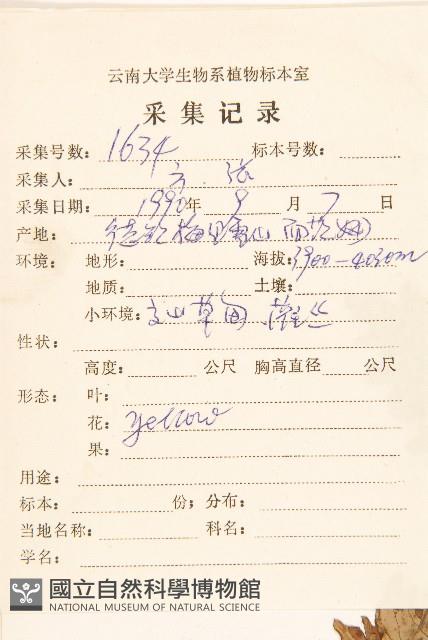 云南大学生物系植物标本室
采集记录
采集号数: 1634 标本号数:
采集人: 方 张
采集日期: 1990年 9月 7日
产地: 德钦梅里雪山
环境: 地形: 海拔: 3900-4030m
地质: 土壤:
小环境: 草甸 灌丛
性状:
高度: 公尺 胸高直径 公尺
形态: 叶:
花: yellow
果:
用途:
标本: 份; 分布:
当地名称: 科名:
学名:
國立自然科學博物館
NATIONAL MUSEUM OF NATURAL SCIENCE